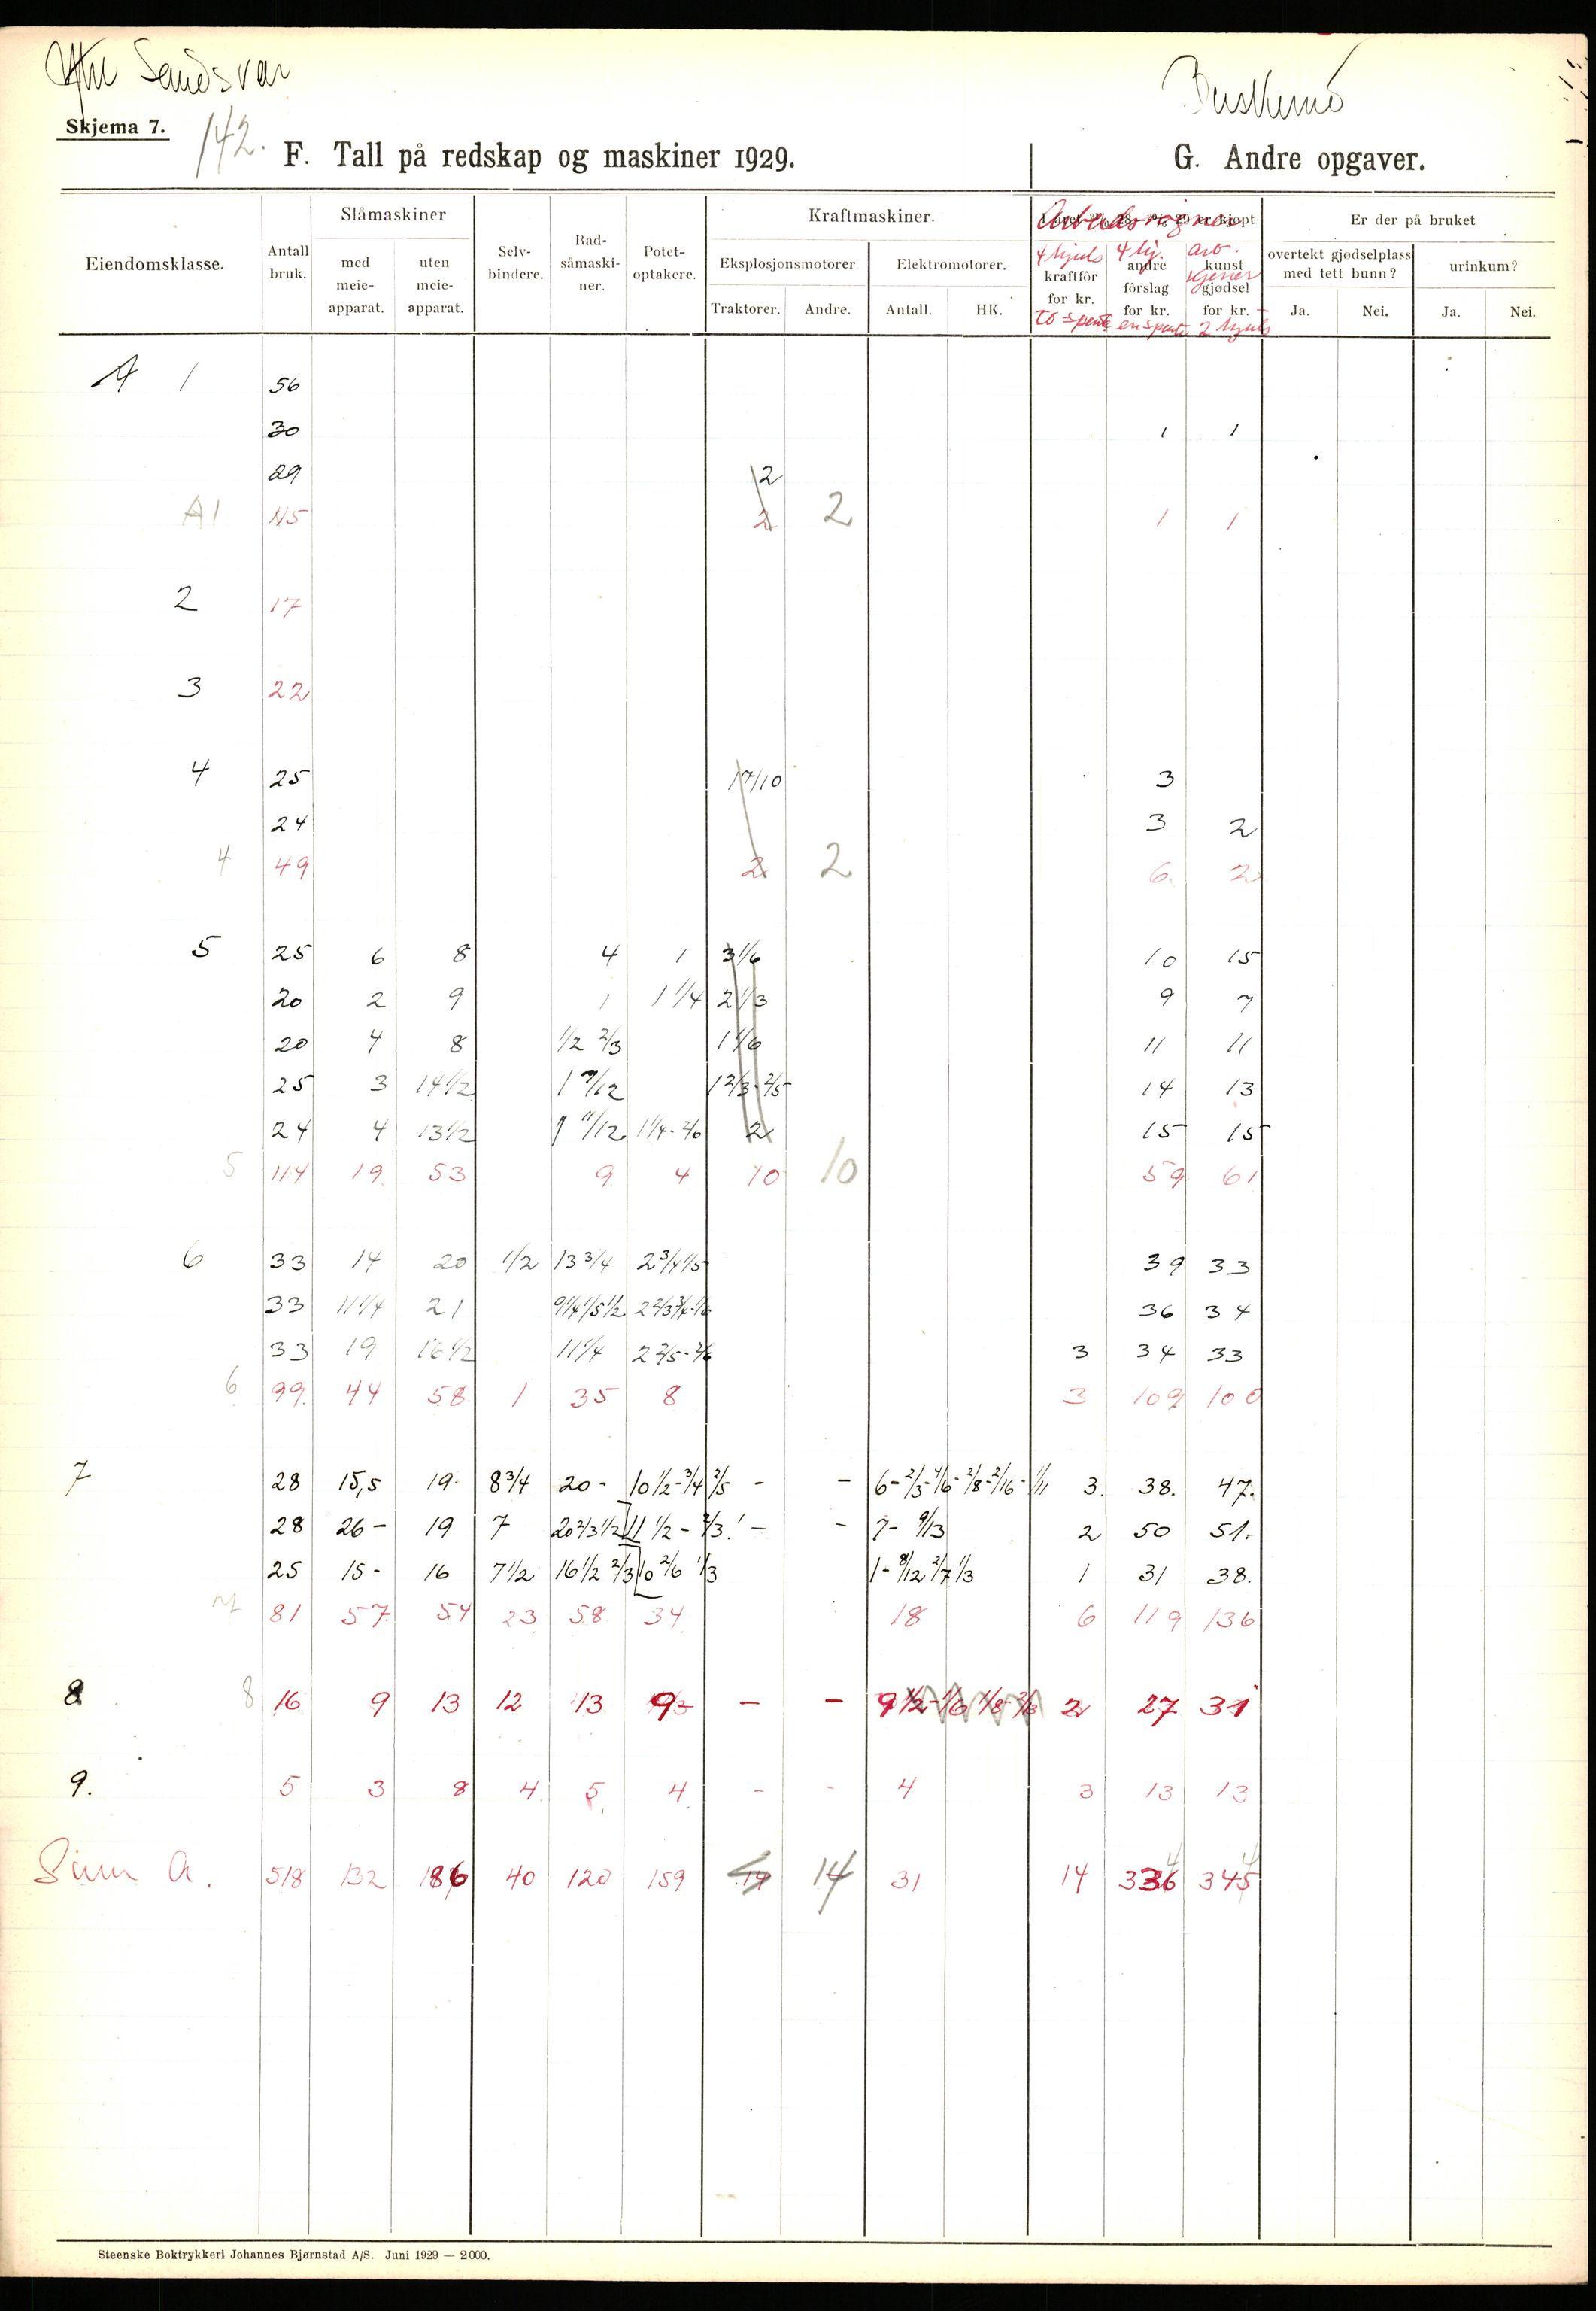 Ytre Sandsvær
Buskerud
Skjema 7.
142.
F. Tall på redskap og maskiner 1929.
G. Andre opgaver.
Eiendomsklasse.
Antall bruk.
Slåmaskiner
med meie- apparat.
uten meie- apparat.
Selv- bindere.
Rad- såmaski- ner.
Potet- optakere.
Kraftmaskiner.
Eksplosjonsmotorer
Traktorer.
Andre.
Elektromotorer.
Antall.
HK.
er kjøpt
Arbeidsvogner
4 hjuls
kraftfôr
for kr.
to spente
4 hj.
andre
fôrslag
for kr.
enspente
arb.
kunst
kjerrer
gjødsel
for kr.
2 hjuls
Er der på bruket
overtekt gjødselplass med tett bunn?
Ja.
Nei.
urinkum?
Ja.
Nei.
A 1 56
30 1 1
29 2
A1 115 2 2 1 1
2 17
3 22
4 25 17/10 3
24 3 2
4 49 2 2 6 2
5 25 6 8 4 1 3 1/6 10 15
20 2 9 1 1 1/4 2 1/3 9 7
20 4 8 1/2 2/3 1 1/6 11 11
25 3 14 1/2 1 7/12 1 2/3-2/5 14 13
24 4 13 1/2 1 11/12 1 1/4-2/6 2 15 15
5 114 19 53 9 4 10 10 59 61
6 33 14 20 1/2 13 3/4 2 3/4 1/5 39 33
33 11 1/4 21 9 1/4 1/5 1/2 2 2/3 3/4-1/6 36 34
33 19 16 1/2 11 1/4 2 2/5-2/6 3 34 33
6 99 44 58 1 35 8 3 109 100
7 28 15,5 19- 8 3/4 20- 10 1/2-3/4 2/5 - - 6-2/3-4/6-2/8-2/16-1/11 3. 38. 47.
28 26- 19 7 20 2/3 1/2 11 1/2-2/3! - - 7-9/13 2 50 51.
25 15- 16 7 1/2 16 1/2 2/3 10 2/6 1/3 1-8/12 2/7 1/3 1 31 38.
7 81 57 54 23 58 34 18 6 119 136
8 8 16 9 13 12 13 9 - - 9 1/2-1/6 1/8-2/6 2 27 31
9. 5 3 8 4 5 4 - - 4 3 13 13
Sum A. 518 132 186 40 120 159 14 14 31 14 336 345
4 4
Steenske Boktrykkeri Johannes Bjørnstad A/S. Juni 1929 — 2000.